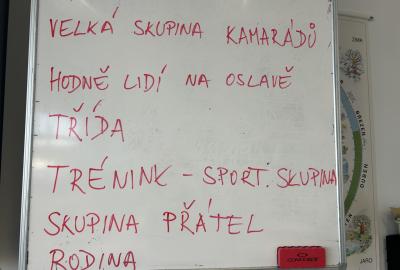 VELKÁ SKUPINA KAMARÁDŮ
HODNĚ LIDÍ NA OSLAVĚ
TŘÍDA
TRÉNINK - SPORT. SKUPINA
SKUPINA PŘÁTEL
RODINA
ZIMA
BŘEZEN
DUBEN
JARO